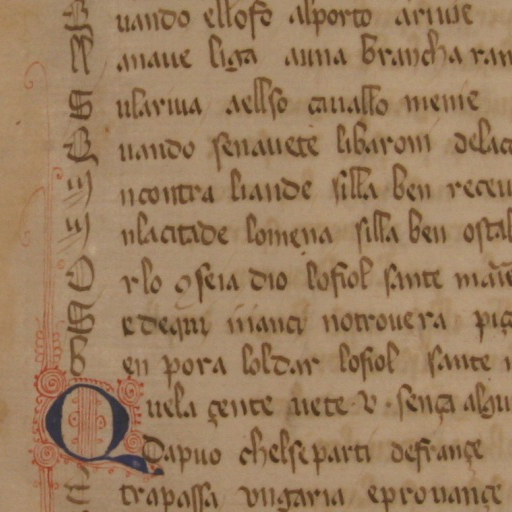 Quando ellofo alporto ariuie
La naue liga auna brancha ram
Sulariua aellso cauallo meme
Quando senauete libaroni delaci
Incontra liande silla ben receu
Inlacitade lomena silla ben ostal
Orlo ꝯseia dio lofiol sante marie
Sedequi inanci notrouera piç
Ben pora loldar lofiol sante
Quela çente uete v. sença alqu
Dapuo chelseparti defrançe
trapassa vngaria eprouançe